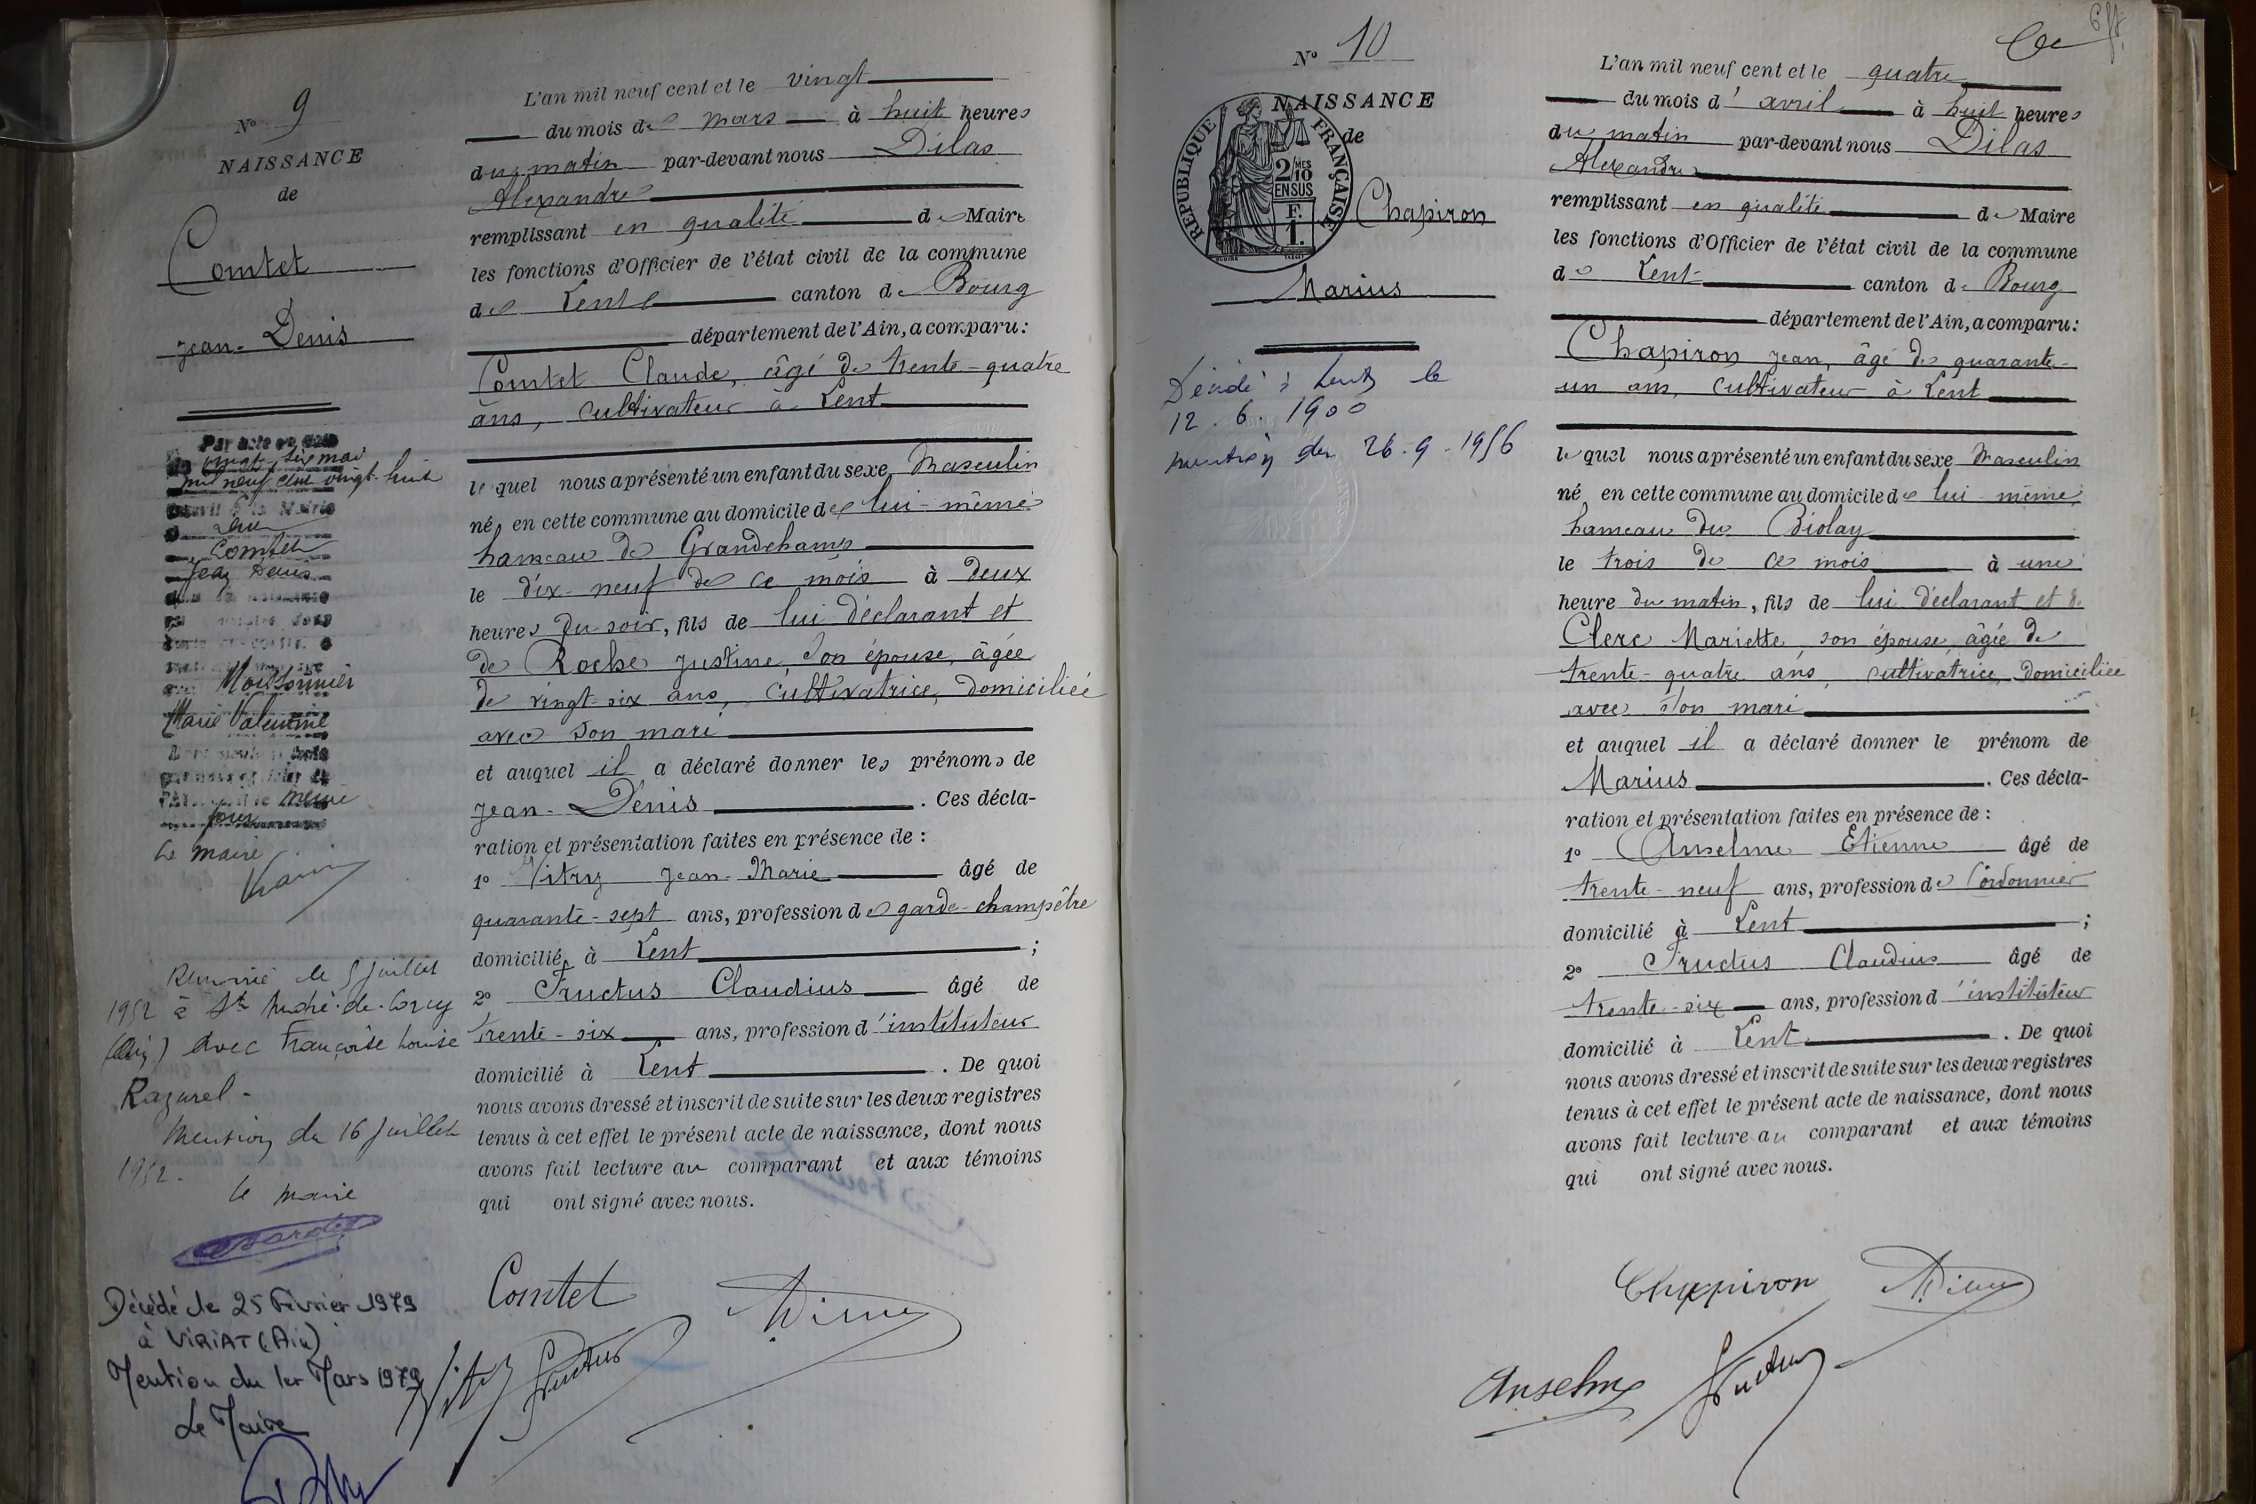 N° 9
NAISSANCE
de
Comtet
Jean-Denis
Par acte en date
du vingt six mai
mil neuf cent vingt-huit
Comtet
Jean Denis
Moissonnier
Marie Valentine
même
jour
Le maire
Remarié le 5 juillet
1952 à St André-de-Corcy
(Ain) avec Françoise Louise
Razurel-
Mention du 16 juillet
1952.
Le maire
Décédé le 25 Février 1979
à VIRIAT (Ain)
Mention du 1er Mars 1979
Le Maire
L'an mil neuf cent et le vingt
du mois de mars à huit heures
du matin par-devant nous Dilas
Alexandre
remplissant en qualité de Maire
les fonctions d'Officier de l'état civil de la commune
de Lent canton de Bourg
département de l'Ain, a comparu:
Comtet Claude, âgé de trente-quatre
ans, cultivateur à Lent
lequel nous a présenté un enfant du sexe Masculin
né en cette commune au domicile de lui-même
hameau de Grandchamp
le dix-neuf de ce mois à deux
heures du soir, fils de lui déclarant et
de Roche Justine, son épouse, âgée
de vingt-six ans, cultivatrice, domiciliée
avec son mari
et auquel il a déclaré donner les prénoms de
Jean-Denis. Ces décla-
ration et présentation faites en présence de :
1° Vitry Jean-Marie âgé de
quarante-sept ans, profession de garde-champêtre
domicilié à Lent ;
2° Fructus Claudius âgé de
trente-six ans, profession d'instituteur
domicilié à Lent. De quoi
nous avons dressé et inscrit de suite sur les deux registres
tenus à cet effet le présent acte de naissance, dont nous
avons fait lecture au comparant et aux témoins
qui ont signé avec nous.
Comtet
Vitry Fructus
N° 10
NAISSANCE
de
REPUBLIQUE FRANÇAISE
2 MES
10
EN SUS
F.
1.
Chapiron
Marius
Décédé à Lent le
12.6.1900
mention du 26.9.1956
L'an mil neuf cent et le quatre
du mois d'avril à huit heures
du matin par-devant nous Dilas
Alexandre
remplissant en qualité de Maire
les fonctions d'Officier de l'état civil de la commune
de Lent canton de Bourg
département de l'Ain, a comparu:
Chapiron Jean, âgé de quarante-
un ans, cultivateur à Lent
lequel nous a présenté un enfant du sexe Masculin
né en cette commune au domicile de lui-même
hameau du Biolay
le trois de ce mois à une
heure du matin, fils de lui déclarant et de
Clerc Mariette, son épouse, âgée de
trente-quatre ans, cultivatrice, domiciliée
avec son mari
et auquel il a déclaré donner le prénom de
Marius. Ces décla-
ration et présentation faites en présence de :
1° Anselme Etienne âgé de
trente-neuf ans, profession de Cordonnier
domicilié à Lent ;
2° Fructus Claudius âgé de
trente-six ans, profession d'instituteur
domicilié à Lent. De quoi
nous avons dressé et inscrit de suite sur les deux registres
tenus à cet effet le présent acte de naissance, dont nous
avons fait lecture au comparant et aux témoins
qui ont signé avec nous.
Chapiron
Anselme Fructus